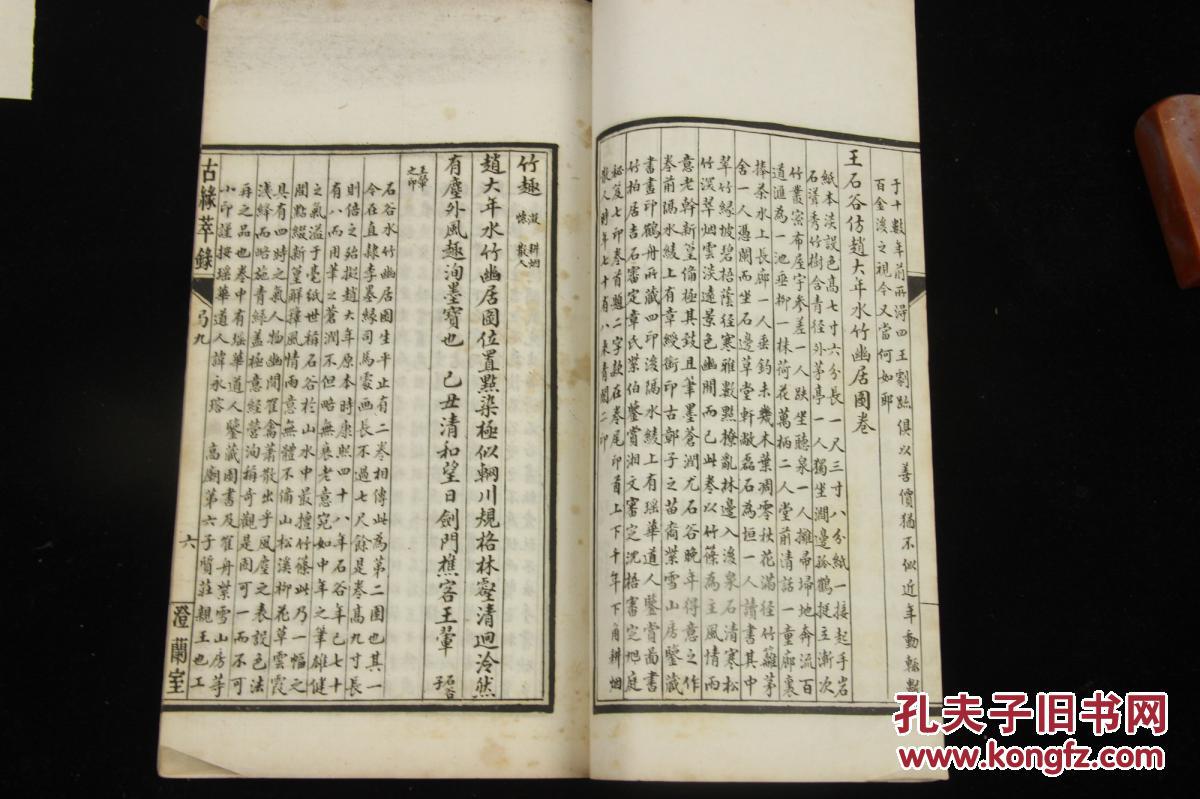 于十數年前所得四王劇跡俱以善價猶不似近年動輒數
百金後之視今又當何如耶
王石谷仿趙大年水竹幽居圖卷
紙本淡設色高七寸六分長一尺三寸八分紙一接起手岩
石潜秀竹樹含青徑外茅亭一人獨坐澗邊孤鶴挺立漸次
竹叢密布屋宇參差一人趺坐聽泉一人擁帚掃地奔流百
道滙為一池垂柳一株荷花萬柄二人堂前清話一童廊裏
捧茶水上長廊一人垂釣未幾木葉凋零秋花滿徑竹籬茅
舍一人憑闌而坐石邊草堂軒敞磊石為垣一人讀書其中
翠竹緣坡碧梧蔭徑寒雅數點撩亂林邊入後泉石清寒松
竹深翠烟雲淡遠景色幽閒而已此卷以竹篠為主風情雨
意老幹新篁備極其致且筆墨蒼潤尤石谷晚年得意之作
卷前隔水綾上有章綬銜印古鄣子之苗裔紫雪山房鑒藏
書畫印鶴舟所藏四印後隔水綾上有瑶華道人鑒賞圖書
竹柏居吉石審定章氏紫伯鑒賞湘文審定沈梧審定旭庭
秘笈七印卷首題二字款在卷尾印首上下千年下角耕烟
散人時年七十有八來青閣二印
竹趣 漫 耕烟
懐 散人
趙大年水竹幽居圖位置點染極似輞川規格林壑清迥泠然
有塵外風趣洵墨寶也 己丑清和望日劍門樵客王翬 石谷子
王翬之印
石谷水竹幽居圖生平止有二卷相傳此為第二圖也其一
今在直隸李墨緣司馬處画長不過七尺餘是卷高九寸長
則倍之殆擬趙大年原本時康熙四十八年石谷年已七十
有八而用筆之蒼潤不但略無衰老意宛如中年之筆雄健
之氣溢于毫紙世稱石谷於山水中最擅竹篠此乃一幅之
間點綴新篁解籜風情雨意無體不備山松溪柳花草雲霞
具有四時之氣人物幽閒罹禽蕭散出乎風塵之表設色法
淺絳而略施青綠蓋極意經營洵稱奇觀是圖可一而不可
再之品也卷中有瑶華道人鑒藏圖書及隺舟紫雪山房等
小印謹按瑶華道人諱永瑢 高廟第六子質莊親王也工
古緣萃錄
弓九
六
澄蘭室
孔夫子旧书网
www.kongfz.com